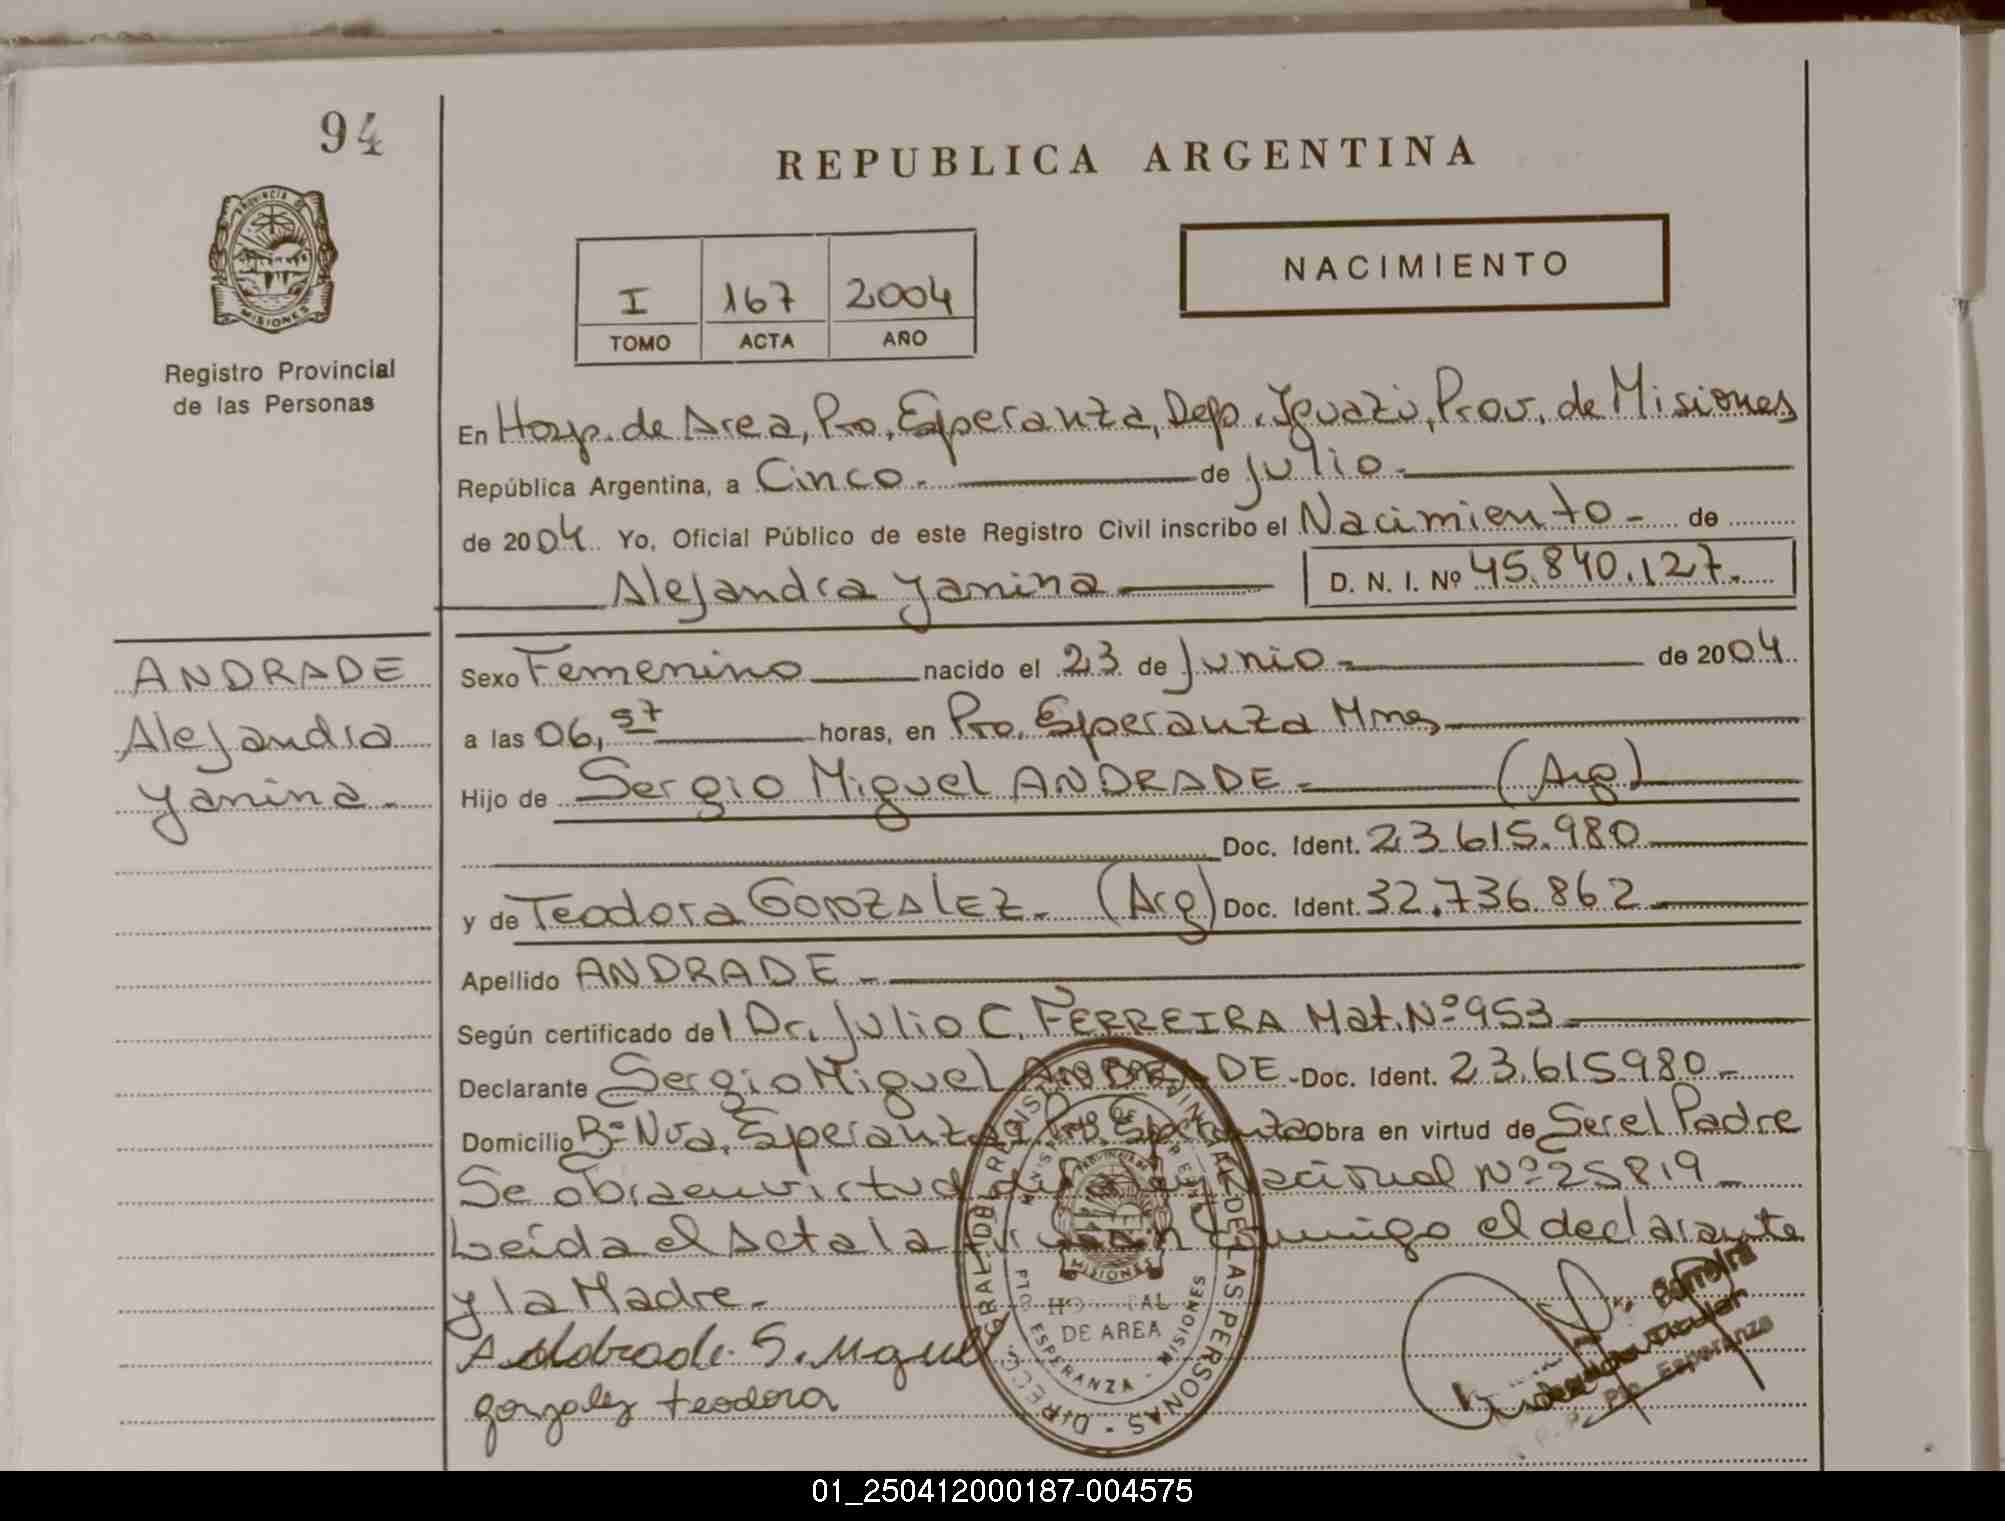 94
REPUBLICA ARGENTINA
PROVINCIA DE
MISIONES
Registro Provincial
de las Personas
I 167 2004
TOMO ACTA AÑO
NACIMIENTO
En Hosp. de Area, Pto. Esperanza, Dep. Iguazú, Prov. de Misiones
República Argentina, a Cinco.- de Julio.-
de 2004 Yo, Oficial Público de este Registro Civil inscribo el Nacimiento - de
Alejandra Yanina
D. N. I. Nº 45.840.127.
ANDRADE
Alejandra
Yanina.-
Sexo Femenino nacido el 23 de Junio.- de 2004
a las 06,57 horas, en Pto. Esperanza Mnes
Hijo de Sergio Miguel ANDRADE.- (Arg)
Doc. Ident. 23.615.980
y de Teodora GONZALEZ.- (Arg) Doc. Ident. 32.736.862
Apellido ANDRADE.-
Según certificado del Dr. Julio C. FERREIRA Mat. Nº 953
Declarante Sergio Miguel ANDRADE - Doc. Ident. 23.615980-
Domicilio Bº Nva. Esperanza Pto. Esperanza Obra en virtud de Ser el Padre
Se obra en virtud de Ley Nacional Nº 25819-
Leída el Acta la firman conmigo el declarante
y la Madre.-
Andrade S. Miguel
gonzalez teodora
DIRECC. GRAL. DEL REGISTRO PROVINCIAL DE LAS PERSONAS
MINISTERIO DE
PROVINCIA DE
MISIONES
HOSPITAL
DE AREA
PTO ESPERANZA - MISIONES
Barreira
Titular
Pto. Esperanza
01_250412000187-004575